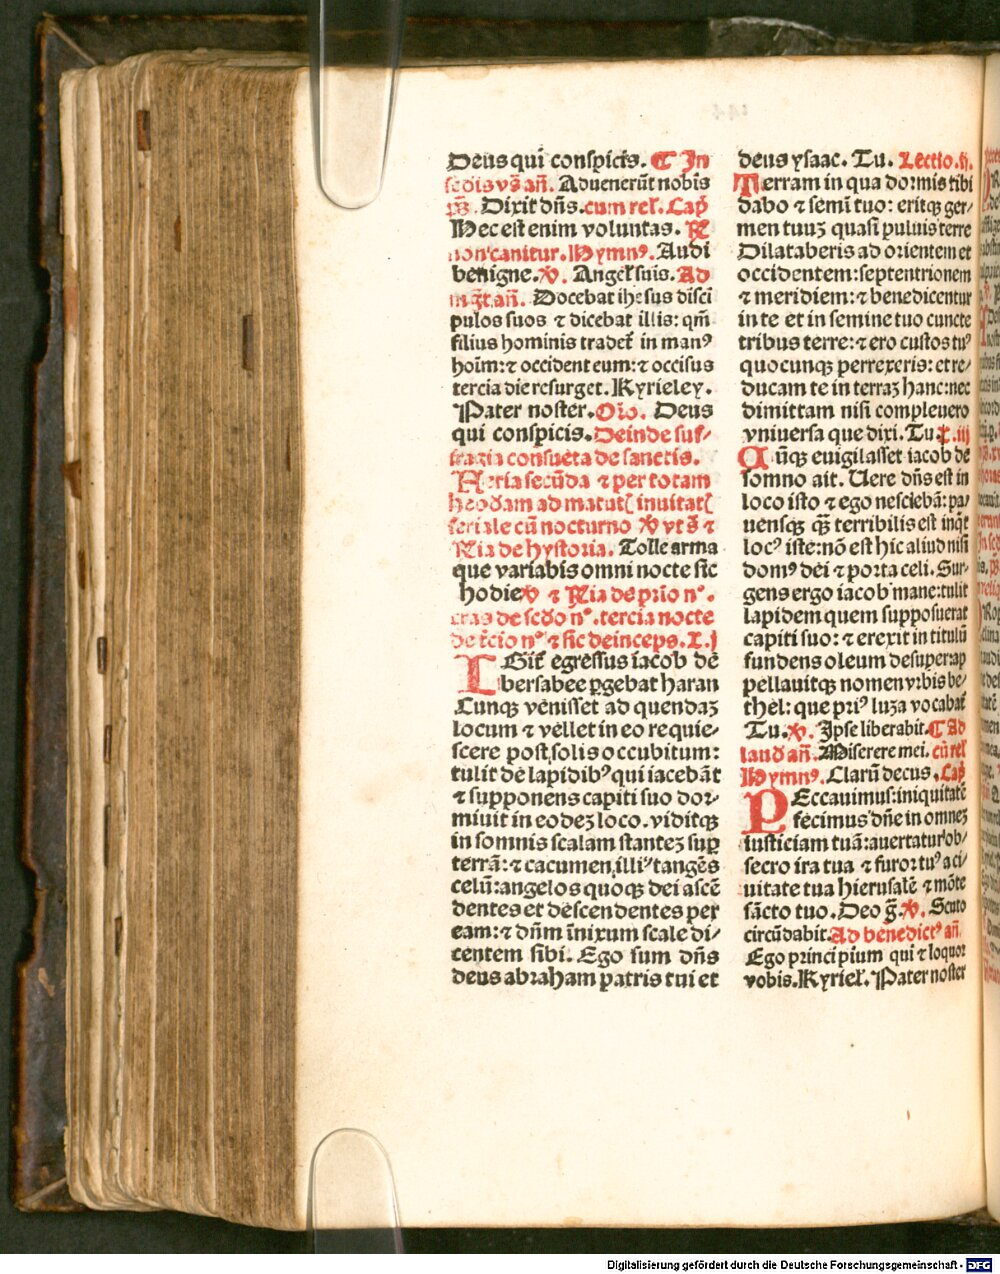 Deus qui conspicis. ¶ In
secūdis vs̄ añ. Aduenerūt nobis
ps̄. Dixit dñs. cum rel. Cap̄
Hec est enim voluntas. R̄
non canitur. Hymnꝰ. Audi
benigne. v̄. Angelˀ suis. Ad
mg̅t añ. Docebat ihesus disci
pulos suos ⁊ dicebat illis: qm̄
filius hominis tradet̄ in manꝰ
hoīm: ⁊ occident eum: ⁊ occisus
tercia die resurget. Kyrieley.
Pater noster. Orō. Deus
qui conspicis. Deinde suf⸗
fragia consueta de sanctis.
Feria secūda ⁊ per totam
hebdam ad matut̄ inuitat̄
feriale cū nocturno v̄ vt s̄ ⁊
R̄ia de hystoria. Tolle arma
que variabis omni nocte sic
hodie v̄ ⁊ R̄ia de prīo nº.
cras de scd̄o nº. tercia nocte
de t̄cio nº ⁊ sic deinceps. L. j
IGit̄ egressus iacob de
bersabee ꝑgebat haran
Cunqꝫ venisset ad quendaꝫ
locum ⁊ vellet in eo requie⸗
scere post solis occubitum:
tulit de lapidibꝰ qui iacebāt
⁊ supponens capiti suo dor⸗
miuit in eodeꝫ loco. viditqꝫ
in somnis scalam stanteꝫ suꝑ
terrā: ⁊ cacumen illiꝰ tangēs
celū: angelos quoqꝫ dei ascē
dentes et descendentes per
eam: ⁊ dñm īnixum scale di⸗
centem sibi. Ego sum dñs
deus abraham patris tui et
deus ysaac. Tu. Lectio. ij.
Terram in qua dormis tibi
dabo ⁊ semī tuo: eritqꝫ ger⸗
men tuuꝫ quasi puluis terre
Dilataberis ad orientem et
occidentem: septentrionem
⁊ meridiem: ⁊ benedicentur
in te et in semine tuo cuncte
tribus terre: ⁊ ero custos tuꝰ
quocunqꝫ perrexeris: et re⸗
ducam te in terraꝫ hanc: nec
dimittam nisi compleuero
vniuersa que dixi. Tu. L. iij
Cūqꝫ euigilasset iacob de
somno ait. Uere dñs est in
loco isto ⁊ ego nesciebā: pa⸗
uensqꝫ qꝫ̄ terribilis est inq̄t
locꝰ iste: nō est hic aliud nisi
domꝰ dei ⁊ porta celi. Sur⸗
gens ergo iacob mane: tulit
lapidem quem supposuerat
capiti suo: ⁊ erexit in titulū
fundens oleum desuper: ap
pellauitqꝫ nomen vrbis be⸗
thel: que priꝰ luza vocabat̄
Tu. v̄. Ipse liberabit. ¶ Ad
laud̄ añ. Miserere mei. cū rel̄
Hymnꝰ. Clarū decus. Cap̄
PEccauimus: iniquitatē
fecimus dñe in omneꝫ
iusticiam tuā: auertatur ob⸗
secro ira tua ⁊ furor tuꝰ a ci⸗
uitate tua hierusalē ⁊ mōte
sācto tuo. Deo g̅. v̄. Scuto
circūdabit. Ad benedictꝰ añ.
Ego principium qui ⁊ loquor
vobis. Kyriel̄. Pater noster
Digitalisierung gefördert durch die Deutsche Forschungsgemeinschaft - DFG